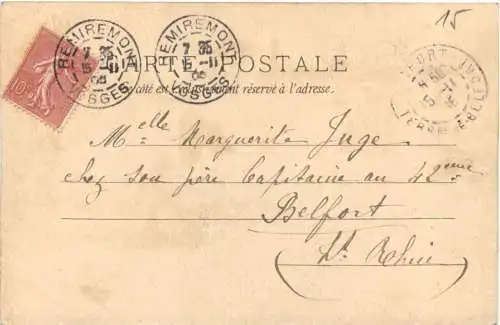 15
REMIREMONT
7 35
15 -11
VOSGES
REMIREMONT
7 35
15 -11
VOSGES
CARTE POSTALE
Ce côté est exclusivement réservé à l'adresse.
10
BELFORT
15 -11
Melle Marguerite Juge
chez son père Capitaine au 42ème
Belfort
(Ht Rhin)